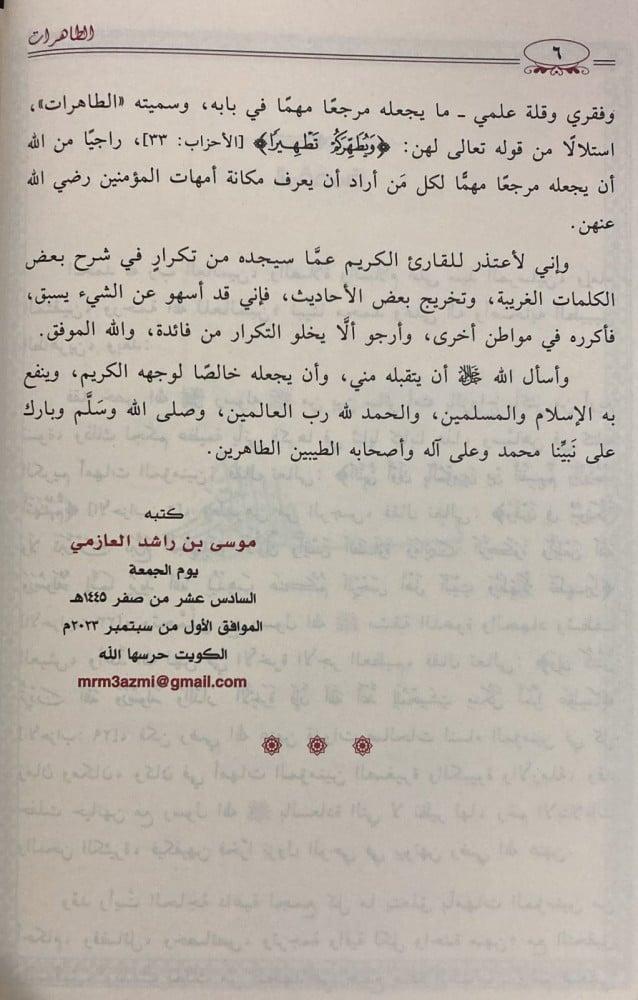 الطاهرات
٦
وفقري وقلة علمي ـ ما يجعله مرجعًا مهمًا في بابه، وسميته «الطاهرات»،
استلالًا من قوله تعالى لهن: ﴿وَيُطَهِّرَكُمْ تَطْهِيرًا﴾ [الأحزاب: ٣٣]، راجيًا من الله
أن يجعله مرجعًا مهمًّا لكل مَن أراد أن يعرف مكانة أمهات المؤمنين رضي الله
عنهن.
وإني لأعتذر للقارئ الكريم عمَّا سيجده من تكرارٍ في شرح بعض
الكلمات الغريبة، وتخريج بعض الأحاديث، فإني قد أسهو عن الشيء يسبق،
فأكرره في مواطن أخرى، وأرجو ألَّا يخلو التكرار من فائدة، والله الموفق.
وأسأل الله ﷻ أن يتقبله مني، وأن يجعله خالصًا لوجهه الكريم، وينفع
به الإسلام والمسلمين، والحمد لله رب العالمين، وصلى الله وسَلَّم وبارك
على نَبيِّنا محمد وعلى آله وأصحابه الطيبين الطاهرين.
كتبه
موسى بن راشد العازمي
يوم الجمعة
السادس عشر من صفر ١٤٤٥هـ
الموافق الأول من سبتمبر ٢٠٢٣م
الكويت حرسها الله
mrm3azmi@gmail.com